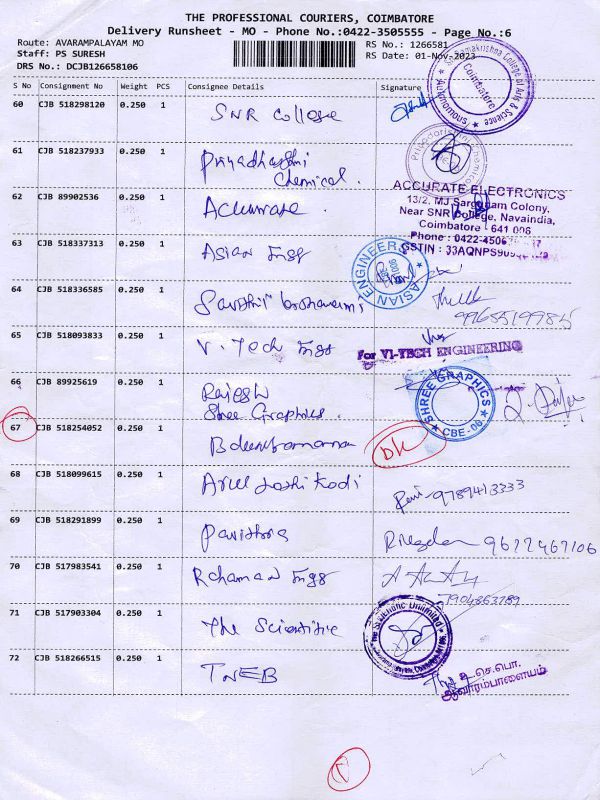 THE PROFESSIONAL COURIERS, COIMBATORE
Delivery Runsheet - MO - Phone No.:0422-3505555 - Page No.:6
Route: AVARAMPALAYAM MO
RS No.: 1266581
Staff: PS SURESH
RS Date: 01-Nov-2023
DRS No.: DCJB126658106
S No Consignment No Weight PCS Consignee Details Signature
60 CJB 518298120 0.250 1 SNR College
Coimbatore
61 CJB 518237933 0.250 1 Priyadharshini
Chemical.
62 CJB 89902536 0.250 1 Accurate.
ACCURATE ELECTRONICS
13/2, MJ Sargunam Colony,
Near SNR College, Navaindia,
Coimbatore - 641 006
Phone : 0422-4506
GSTIN : 33AQNPS
63 CJB 518337313 0.250 1 Asian Engg
ASIAN ENGINEERS
64 CJB 518336585 0.250 1
65 CJB 518093833 0.250 1 V. Tech Engg
For VI-TECH ENGINEERING
66 CJB 89925619 0.250 1 Rajesh
Shree Graphics.
SHREE GRAPHICS
CBE-06
67 CJB 518254052 0.250 1
68 CJB 518099615 0.250 1 Arul Joshi Kodi
9789413333
69 CJB 518291899 0.250 1 Pavithra
9677467106
70 CJB 517983541 0.250 1 Rahaman Engg
7904363789
71 CJB 517903304 0.250 1 The Scientific
72 CJB 518266515 0.250 1 TNEB
உ செ.பொ.
ஆவாரம்பாளையம்